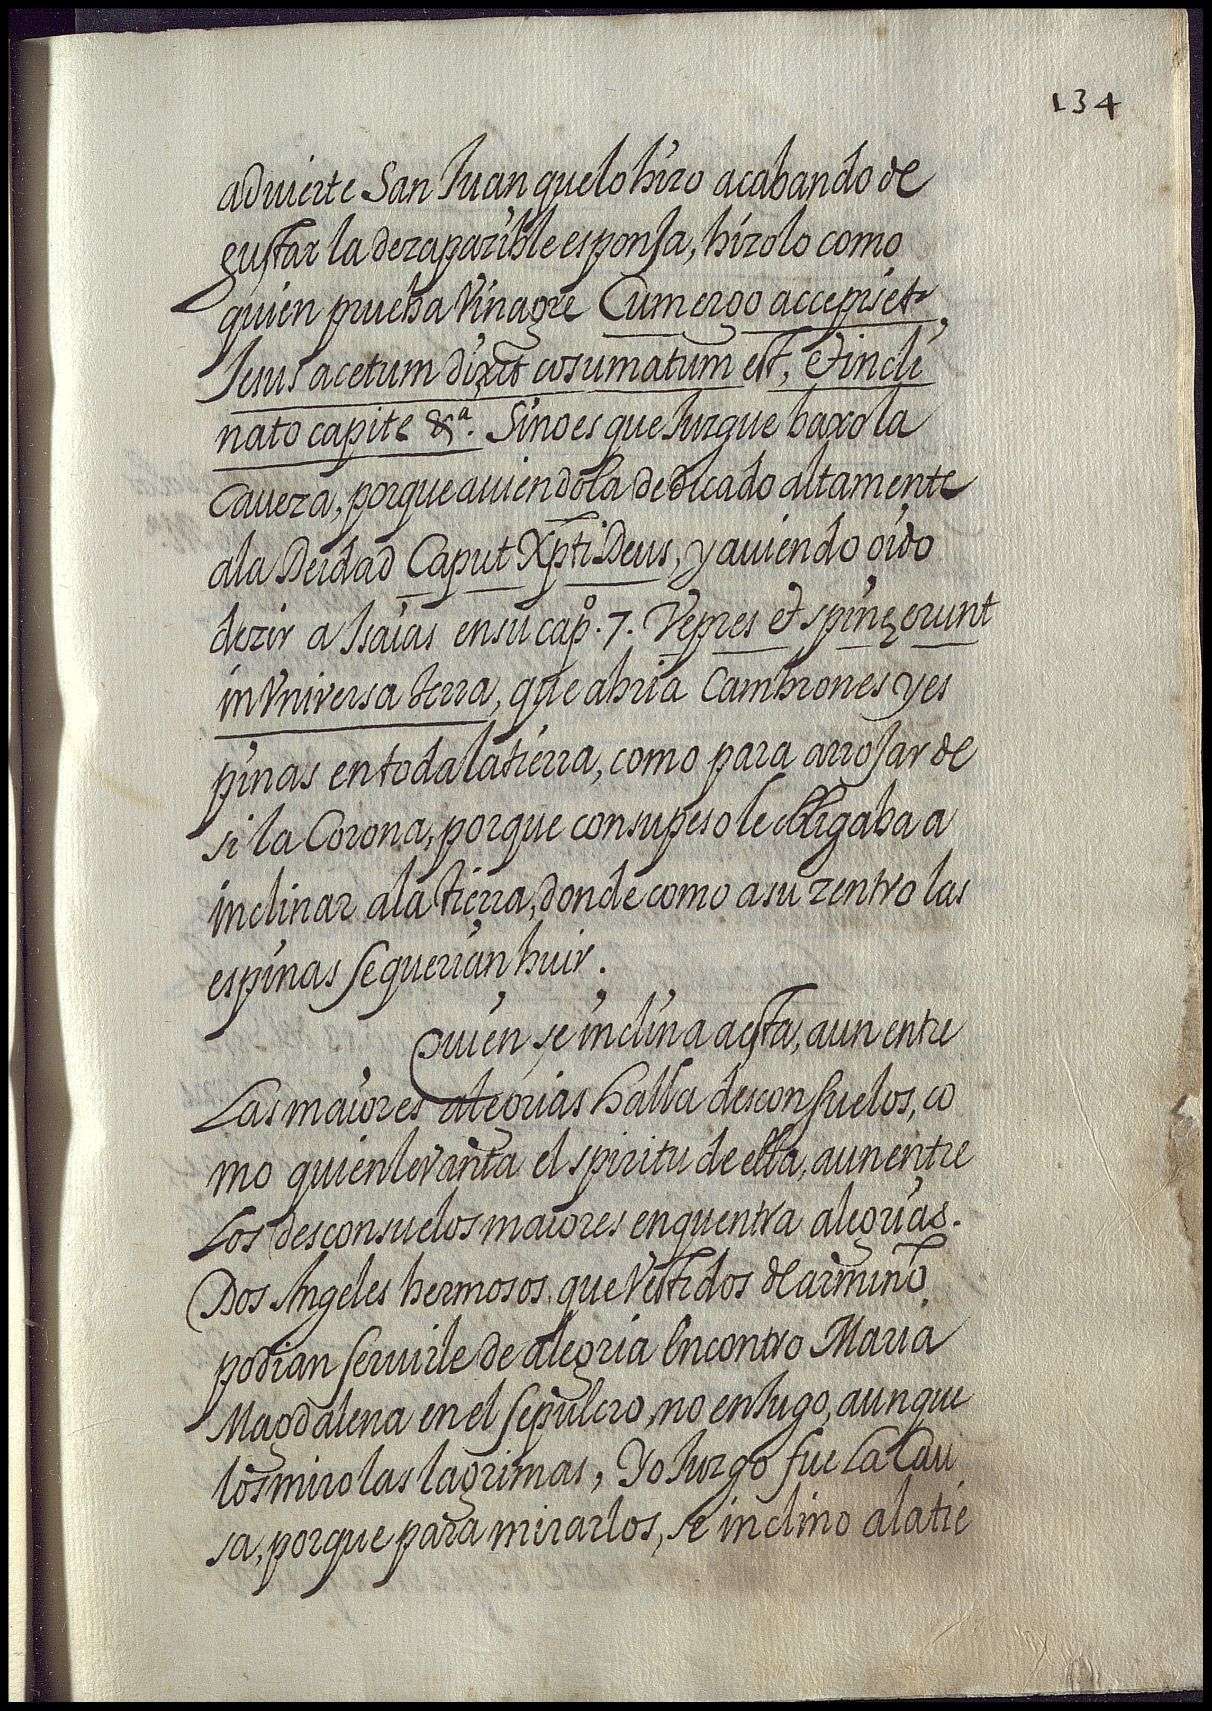 134
aduierte San Juan que lo hizo acabando de
gustar la dezapazible esponja, hizolo como
quien prueba Vinagre Cum ergo accepiset
Jesus acetum dixit cosumatum est, et incli
nato capite &ª. Sino es que Juzgue baxo la
Caueza, porque auiendola dedicado altamente
ala Deidad Caput Xpti Deus, y auiendo oido
dezir a Isaias en su capº. 7. Vepres et spinę erunt
in Vniversa terra, que abria Cambrones y es
pinas en toda la tierra, como para arrojar de
si la Corona, porque con su peso le obligaba a
inclinar ala tierra, donde como a su zentro las
espinas se querian huir.
Quien se inclina a esta, aun entre
Las maiores alegrias halla desconsuelos, co
mo quien levanta el spiritu de ella, aun entre
Los desconsuelos maiores enquentra alegrias.
Dos Angeles hermosos, que Vestidos de armiño
podian seruirle de alegria Encontro Maria
Magdalena en el sepulcro, no enjugo, aunque
los miro las lagrimas, Yo Juzgo fue La Cau
sa, porque para mirarlos, se inclino a la tie